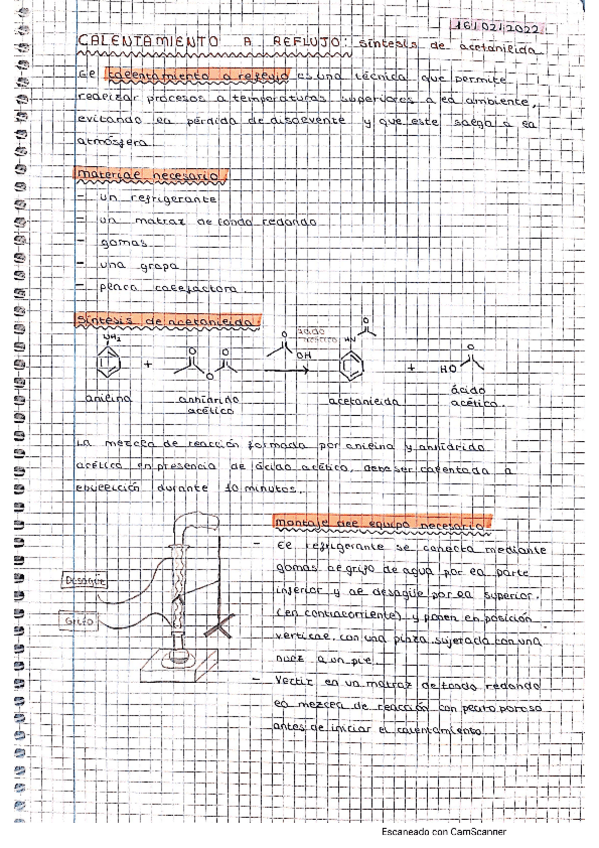 16/02/2022
CALENTAMIENTO A REFLUJO: síntesis de acetanilida
El calentamiento a reflujo es una técnica que permite
realizar procesos a temperaturas superiores a la ambiente,
evitando la pérdida de disolvente y que este salga a la
atmósfera.
material necesario
- un refrigerante
- un matraz de fondo redondo
- gomas
- una grapa
- placa calefactora.
síntesis de acetanilida:
NH₂
O O
O
O
OH
ácido
acético
HN
O
+
+
HO
O
anilina
anhídrido
acético
acetanilida
ácido
acético.
La mezcla de reacción formada por anilina y anhídrido
acético en presencia de ácido acético, debe ser calentada a
ebullición durante 10 minutos.
montaje del equipo necesario
Desagüe
Grifo
- El refrigerante se conecta mediante
gomas al grifo de agua por la parte
inferior y al desagüe por la superior.
(en contracorriente) y ponen en posición
vertical, con una pinza sujetada con una
nuez a un pie.
- Vertir en un matraz de fondo redondo
la mezcla de reacción con plato poroso
antes de iniciar el calentamiento.
Escaneado con CamScanner